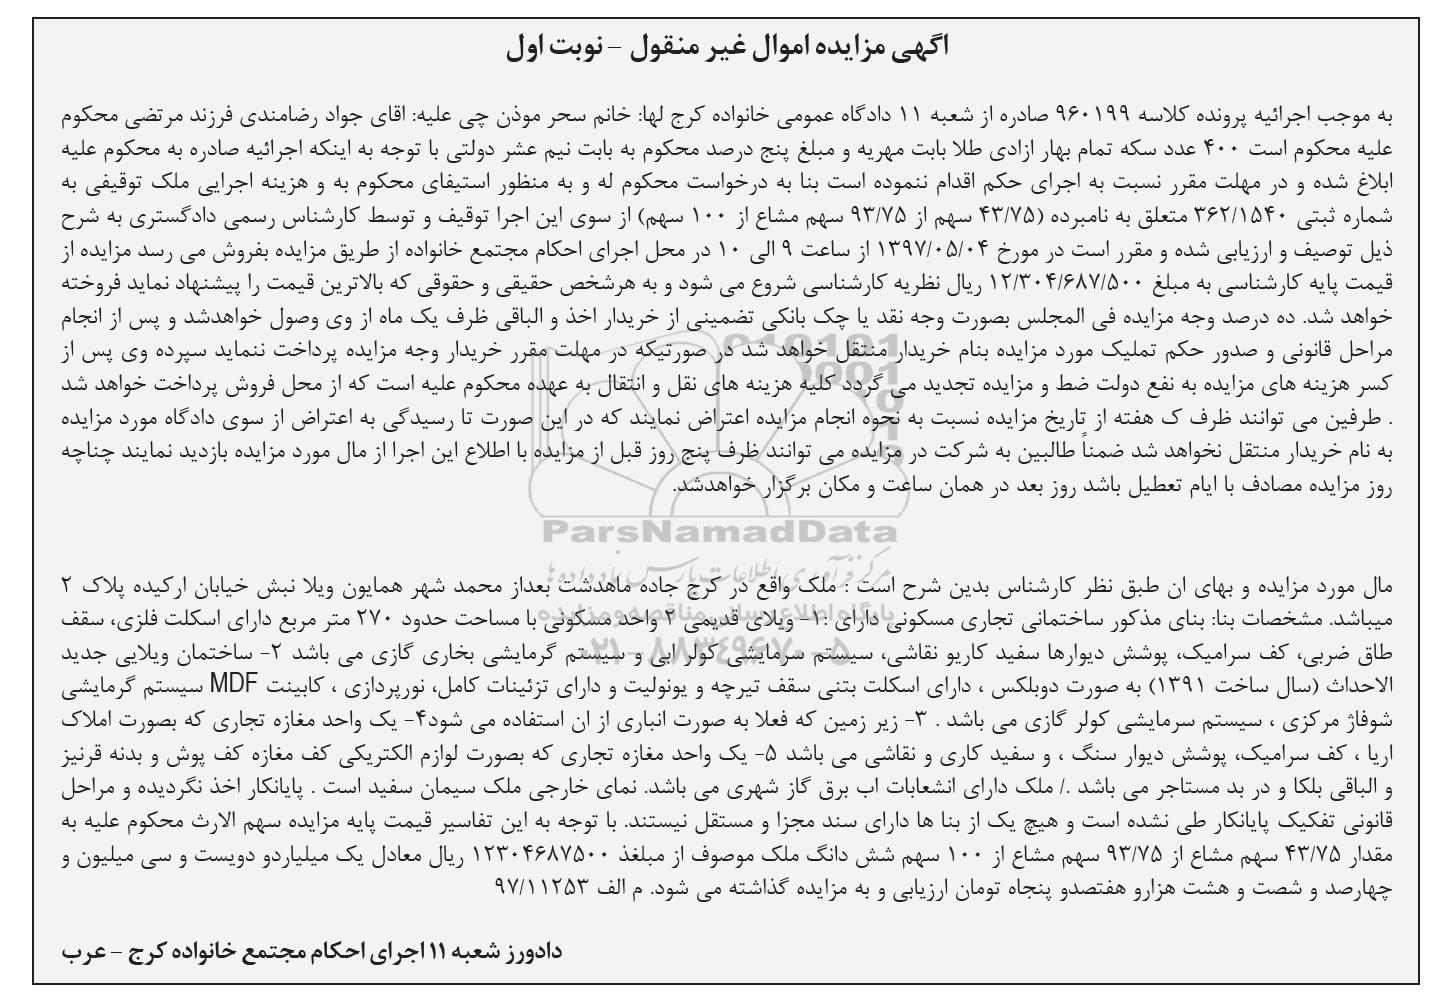 اگهی مزایده اموال غیر منقول – نوبت اول
به موجب اجرائیه پرونده کلاسه ۹۶۰۱۹۹ صادره از شعبه ۱۱ دادگاه عمومی خانواده کرج لها: خانم سحر موذن چی علیه: اقای جواد رضامندی فرزند مرتضی محکوم
علیه محکوم است ۴۰۰ عدد سکه تمام بهار ازادی طلا بابت مهریه و مبلغ پنج درصد محکوم به بابت نیم عشر دولتی با توجه به اینکه اجرائیه صادره به محکوم علیه
ابلاغ شده و در مهلت مقرر نسبت به اجرای حکم اقدام ننموده است بنا به درخواست محکوم له و به منظور استیفای محکوم به و هزینه اجرایی ملک توقیفی به
شماره ثبتی ۳۶۲/۱۵۴۰ متعلق به نامبرده (۴۳/۷۵ سهم از ۹۳/۷۵ سهم مشاع از ۱۰۰ سهم) از سوی این اجرا توقیف و توسط کارشناس رسمی دادگستری به شرح
ذیل توصیف و ارزیابی شده و مقرر است در مورخ ۱۳۹۷/۰۵/۰۴ از ساعت ۹ الی ۱۰ در محل اجرای احکام مجتمع خانواده از طریق مزایده بفروش می رسد مزایده از
قیمت پایه کارشناسی به مبلغ ۱۲/۳۰۴/۶۸۷/۵۰۰ ریال نظریه کارشناسی شروع می شود و به هرشخص حقیقی و حقوقی که بالاترین قیمت را پیشنهاد نماید فروخته
خواهد شد. ده درصد وجه مزایده فی المجلس بصورت وجه نقد یا چک بانکی تضمینی از خریدار اخذ و الباقی ظرف یک ماه از وی وصول خواهدشد و پس از انجام
مراحل قانونی و صدور حکم تملیک مورد مزایده بنام خریدار منتقل خواهد شد در صورتیکه در مهلت مقرر خریدار وجه مزایده پرداخت ننماید سپرده وی پس از
کسر هزینه های مزایده به نفع دولت ضط و مزایده تجدید می گردد کلیه هزینه های نقل و انتقال به عهده محکوم علیه است که از محل فروش پرداخت خواهد شد
. طرفین می توانند ظرف ک هفته از تاریخ مزایده نسبت به نحوه انجام مزایده اعتراض نمایند که در این صورت تا رسیدگی به اعتراض از سوی دادگاه مورد مزایده
به نام خریدار منتقل نخواهد شد ضمناً طالبین به شرکت در مزایده می توانند ظرف پنج روز قبل از مزایده با اطلاع این اجرا از مال مورد مزایده بازدید نمایند چناچه
روز مزایده مصادف با ایام تعطیل باشد روز بعد در همان ساعت و مکان برگزار خواهدشد.
ParsNamadData
مرکز فرآوری اطلاعات پارس نماد داده ها
مال مورد مزایده و بهای ان طبق نظر کارشناس بدین شرح است : ملک واقع در کرج جاده ماهدشت بعداز محمد شهر همایون ویلا نبش خیابان ارکیده پلاک ۲
پایگاه اطلاع رسانی مناقصه و مزایده
میباشد. مشخصات بنا: بنای مذکور ساختمانی تجاری مسکونی دارای :۱- ویلای قدیمی ۲ واحد مسکونی با مساحت حدود ۲۷۰ متر مربع دارای اسکلت فلزی، سقف
۰۲۱-۸۸۳۴۹۶۷۰-۵
طاق ضربی، کف سرامیک، پوشش دیوارها سفید کاریو نقاشی، سیستم سرمایشی کولر ابی و سیستم گرمایشی بخاری گازی می باشد ۲- ساختمان ویلایی جدید
الاحداث (سال ساخت ۱۳۹۱) به صورت دوبلکس ، دارای اسکلت بتنی سقف تیرچه و یونولیت و دارای تزئینات کامل، نورپردازی ، کابینت MDF سیستم گرمایشی
شوفاژ مرکزی ، سیستم سرمایشی کولر گازی می باشد . ۳- زیر زمین که فعلا به صورت انباری از ان استفاده می شود۴- یک واحد مغازه تجاری که بصورت املاک
اریا ، کف سرامیک، پوشش دیوار سنگ ، و سفید کاری و نقاشی می باشد ۵- یک واحد مغازه تجاری که بصورت لوازم الکتریکی کف مغازه کف پوش و بدنه قرنیز
و الباقی بلکا و در بد مستاجر می باشد ./ ملک دارای انشعابات اب برق گاز شهری می باشد. نمای خارجی ملک سیمان سفید است . پایانکار اخذ نگردیده و مراحل
قانونی تفکیک پایانکار طی نشده است و هیچ یک از بنا ها دارای سند مجزا و مستقل نیستند. با توجه به این تفاسیر قیمت پایه مزایده سهم الارث محکوم علیه به
مقدار ۴۳/۷۵ سهم مشاع از ۹۳/۷۵ سهم مشاع از ۱۰۰ سهم شش دانگ ملک موصوف از مبلغذ ۱۲۳۰۴۶۸۷۵۰۰ ریال معادل یک میلیاردو دویست و سی میلیون و
چهارصد و شصت و هشت هزارو هفتصدو پنجاه تومان ارزیابی و به مزایده گذاشته می شود. م الف ۹۷/۱۱۲۵۳
دادورز شعبه ۱۱ اجرای احکام مجتمع خانواده کرج – عرب